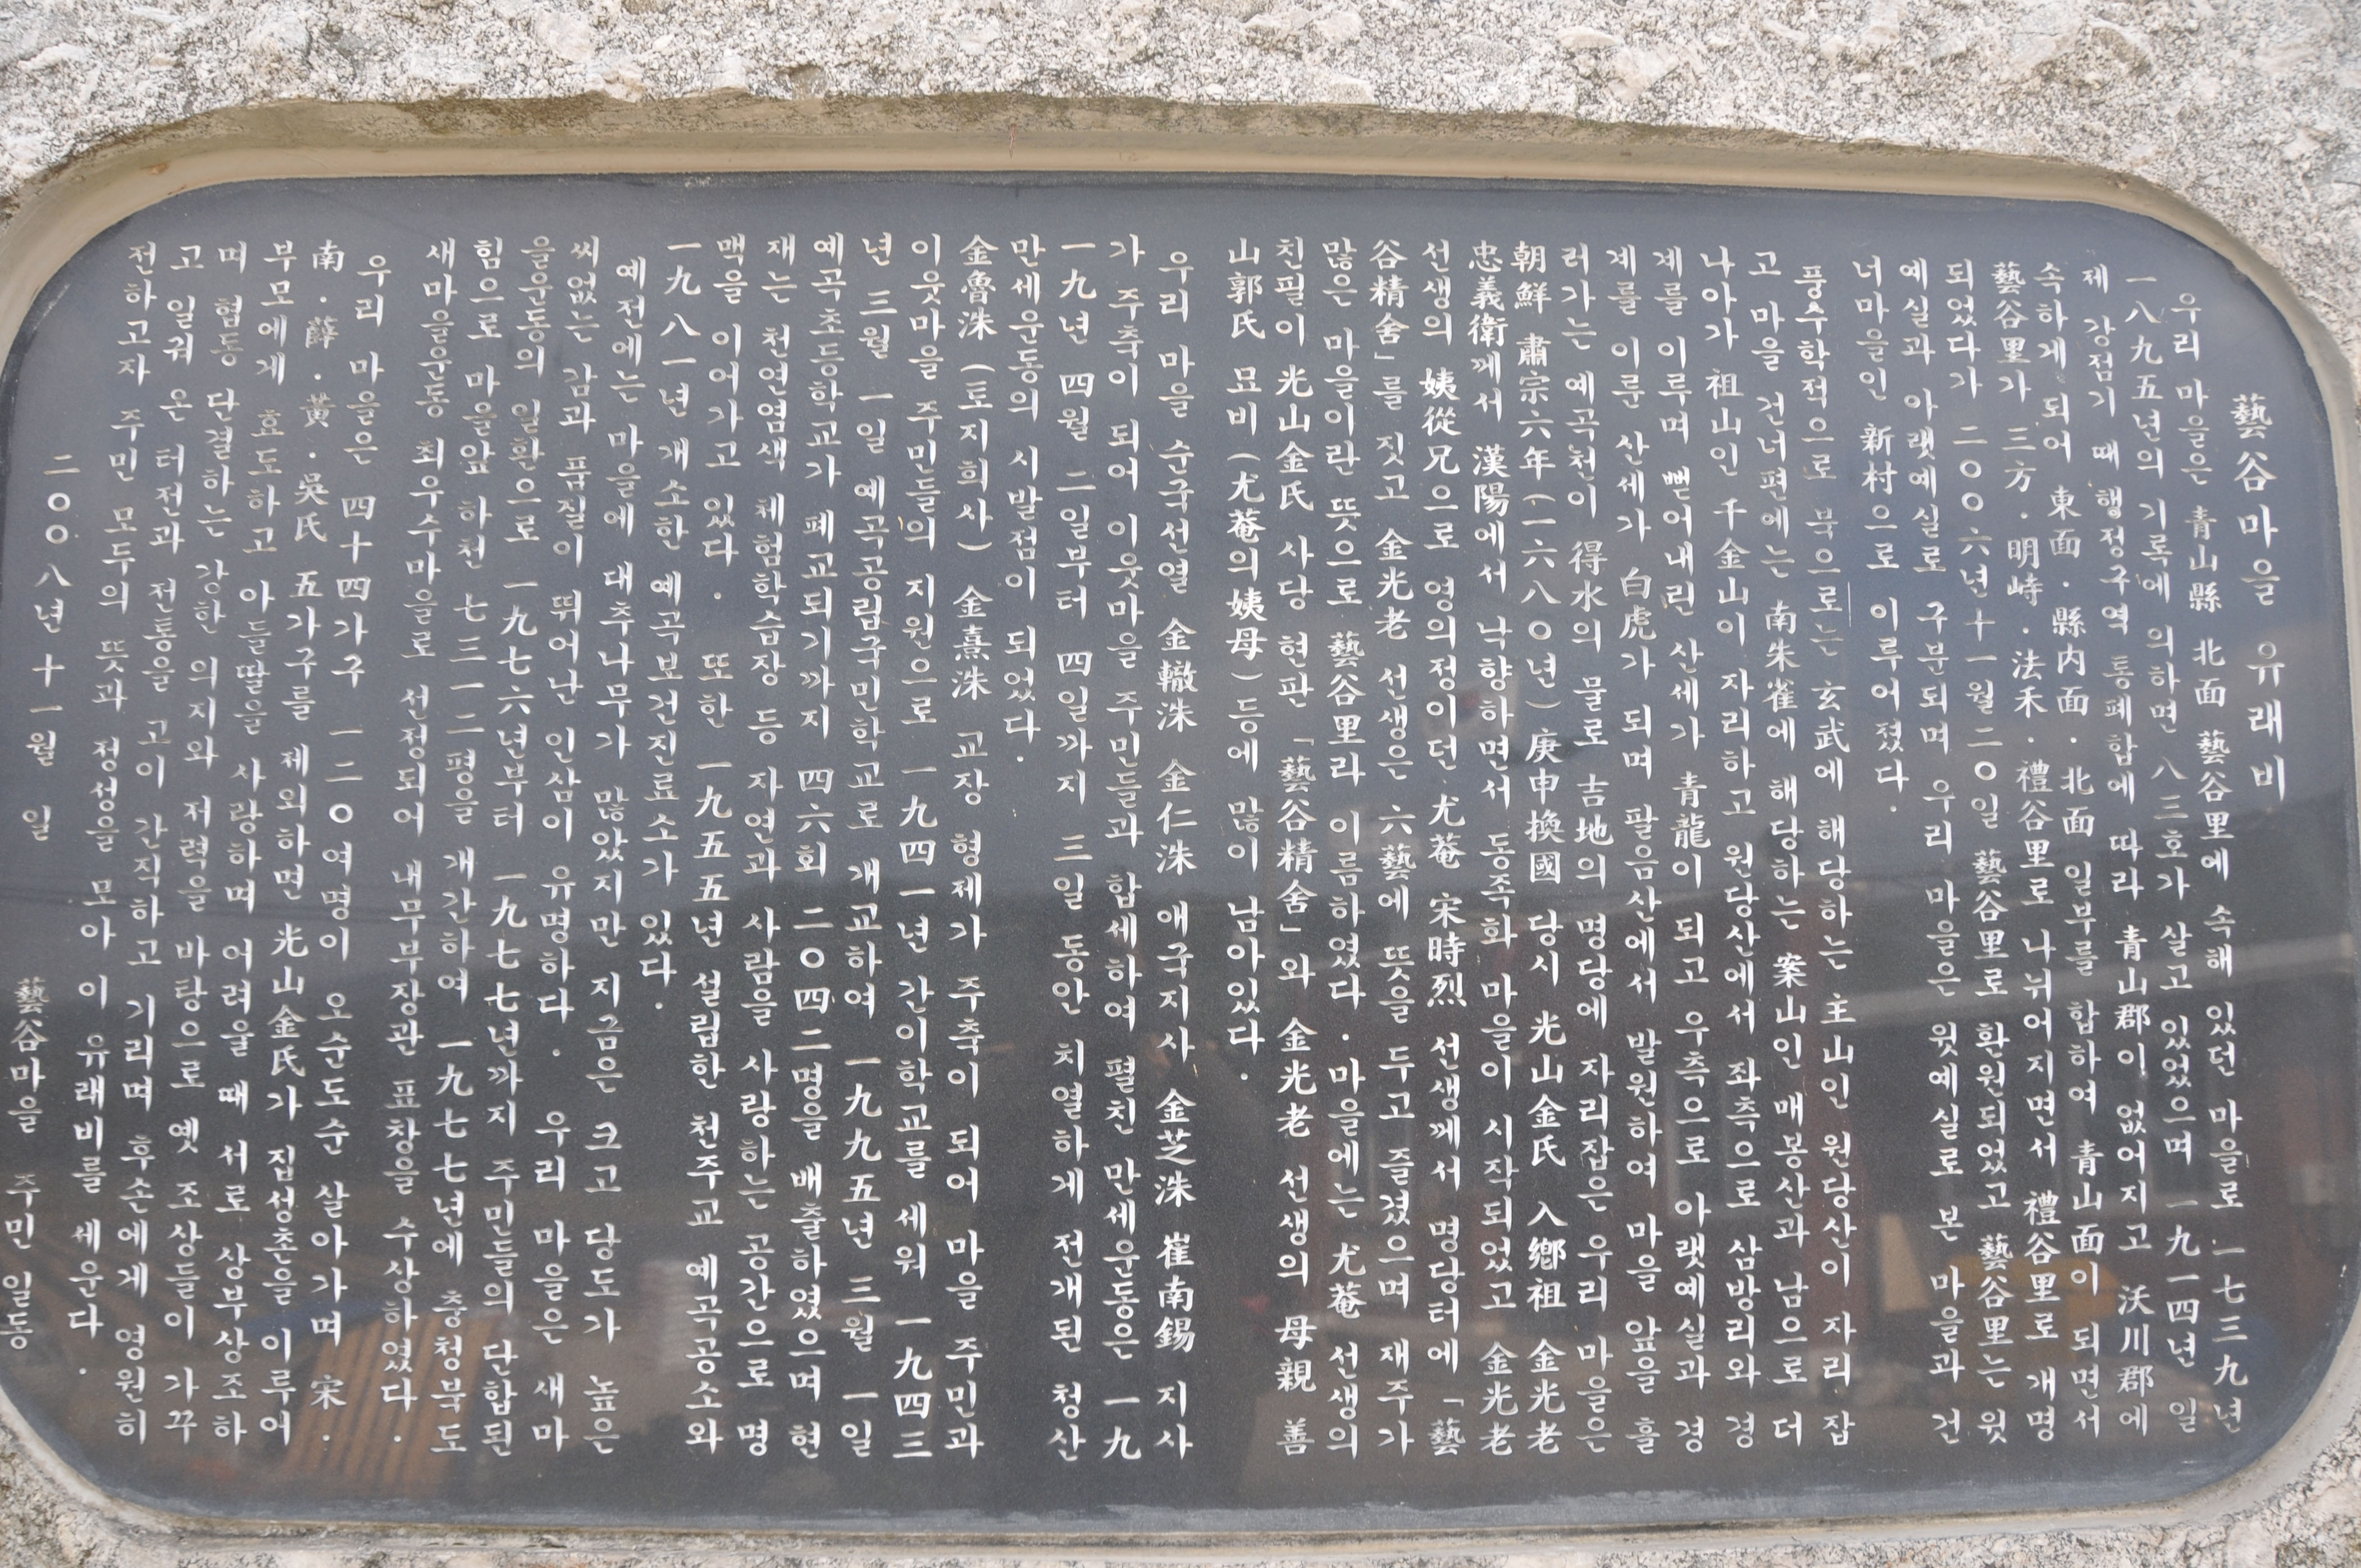 藝谷마을 유래비
우리 마을은 青山縣 北面 藝谷里에 속해 있던 마을로 一七三九년
一八九五년의 기록에 의하면 八三호가 살고 있었으며 一九一四년 일
제 강점기 때 행정구역 통폐합에 따라 青山郡이 없어지고 沃川郡에
속하게 되어 東面·縣内面·北面 일부를 합하여 青山面이 되면서
藝谷里가 三方·明峙·法禾·禮谷里로 나뉘어지면서 禮谷里로 개명
되었다가 二〇〇六년 十一월 二〇일 藝谷里로 환원되었고 藝谷里는 윗
예실과 아랫예실로 구분되며 우리 마을은 윗예실로 본 마을과 건
너마을인 新村으로 이루어졌다.
풍수학적으로 북으로는 玄武에 해당하는 主山인 원당산이 자리 잡
고 마을 건너편에는 南朱雀에 해당하는 案山인 매봉산과 남으로 더
나아가 祖山인 千金山이 자리하고 원당산에서 좌측으로 삼방리와 경
계를 이루며 뻗어내린 산세가 青龍이 되고 우측으로 아랫예실과 경
계를 이룬 산세가 白虎가 되며 팔음산에서 발원하여 마을 앞을 흘
러가는 예곡천이 得水의 물로 吉地의 명당에 자리잡은 우리 마을은
朝鮮 肅宗六年(一六八〇년) 庚申換國 당시 光山金氏 入鄉祖 金光老
忠義衛께서 漢陽에서 낙향하면서 동족화 마을이 시작되었고 金光老
선생의 姨從兄으로 영의정이던 尤菴 宋時烈 선생께서 명당터에 「藝
谷精舍」를 짓고 金光老 선생은 六藝에 뜻을 두고 즐겼으며 재주가
많은 마을이란 뜻으로 藝谷里라 이름하였다. 마을에는 尤菴 선생의
친필이 光山金氏 사당 현판 「藝谷精舍」와 金光老 선생의 母親 善
山郭氏 묘비(尤菴의 姨母) 등에 많이 남아있다.
우리 마을 순국선열 金轍洙 金仁洙 애국지사 金芝洙 崔南錫 지사
가 주축이 되어 이웃마을 주민들과 합세하여 펼친 만세운동은 一九
一九년 四월 二일부터 四일까지 三일 동안 치열하게 전개된 청산
만세운동의 시발점이 되었다.
金魯洙(토지희사) 金熹洙 교장 형제가 주축이 되어 마을 주민과
이웃마을 주민들의 지원으로 一九四一년 간이학교를 세워 一九四三
년 三월 一일 예곡공립국민학교로 개교하여 一九九五년 三월 一일
예곡초등학교가 폐교되기까지 四六회 二〇四二명을 배출하였으며 현
재는 천연염색 체험학습장 등 자연과 사람을 사랑하는 공간으로 명
맥을 이어가고 있다. 또한 一九五五년 설립한 천주교 예곡공소와
一九八一년 개소한 예곡보건진료소가 있다.
예전에는 마을에 대추나무가 많았지만 지금은 크고 당도가 높은
씨없는 감과 품질이 뛰어난 인삼이 유명하다. 우리 마을은 새마
을운동의 일환으로 一九七六년부터 一九七七년까지 주민들의 단합된
힘으로 마을앞 하천 七三一二평을 개간하여 一九七七년에 충청북도
새마을운동 최우수마을로 선정되어 내무부장관 표창을 수상하였다.
우리 마을은 四十四가구 一二〇여명이 오순도순 살아가며 宋·
南·薛·黃·吳氏 五가구를 제외하면 光山金氏가 집성촌을 이루어
부모에게 효도하고 아들딸을 사랑하며 어려울 때 서로 상부상조하
며 협동 단결하는 강한 의지와 저력을 바탕으로 옛 조상들이 가꾸
고 일궈 온 터전과 전통을 고이 간직하고 기리며 후손에게 영원히
전하고자 주민 모두의 뜻과 정성을 모아 이 유래비를 세운다.
二〇〇八년 十一월 일
藝谷마을 주민 일동